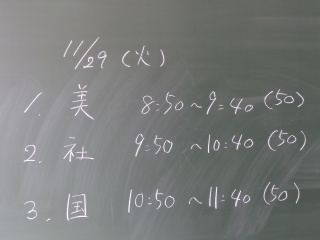 11/29 (火)
1. 美 8:50 ~ 9:40 (50)
2. 社 9:50 ~ 10:40 (50)
3. 国 10:50 ~ 11:40 (50)